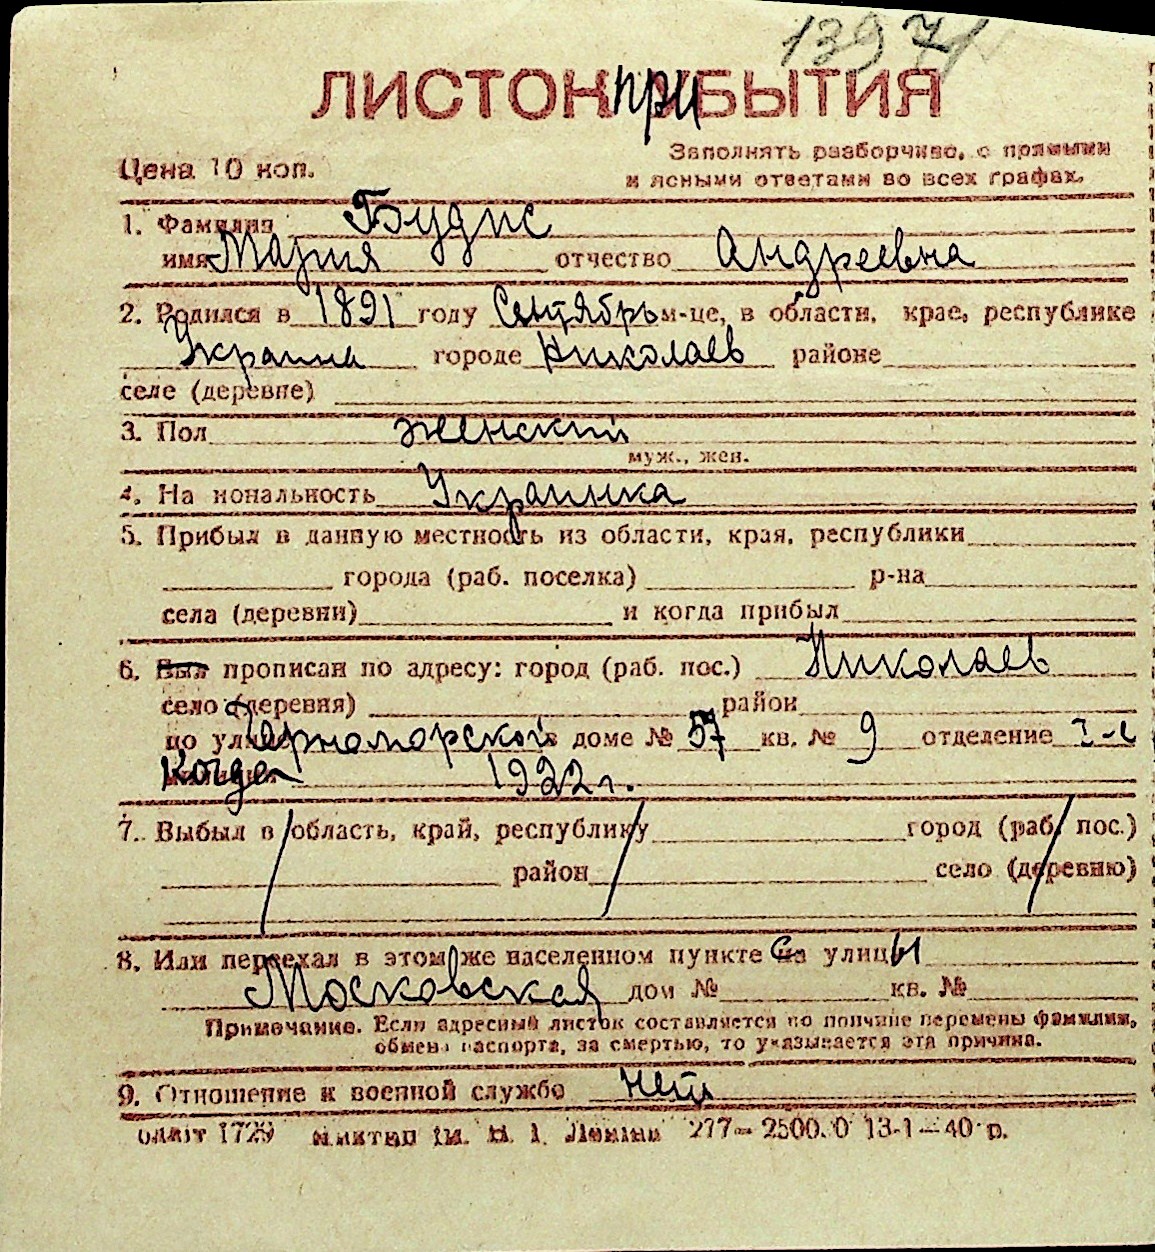 1397
ЛИСТОК ПРИБЫТИЯ
Цена 10 коп.
Заполнять разборчиво, с прямыми
и ясными ответами во всех графах.
1. Фамилия Будис
имя Мария отчество Андреевна
2. Родился в 1891 году Сентябрь м-це, в области, крае, республике
Украина городе Николаев районе
селе (деревне)
3. Пол женский
муж., жен.
4. На иональность Украинка
5. Прибыл в данную местность из области, края, республики
города (раб. поселка) р-на
села (деревни) и когда прибыл
6. Был прописан по адресу: город (раб. пос.) Николаев
село (деревня) район
по улице Черноморской в доме № 57 кв. № 9 отделение I-е
Когда 1922 г.
7. Выбыл в область, край, республику город (раб. пос.)
район село (деревню)
8. Или переехал в этом же населенном пункте с улицы
Московская дом № кв. №
Примечание. Если адресный листок составляется по причине перемены фамилии,
обмена паспорта, за смертью, то указывается эта причина.
9. Отношение к военной службе нет
1729 им. В. И. Ленина 277— 13-1—40 р.